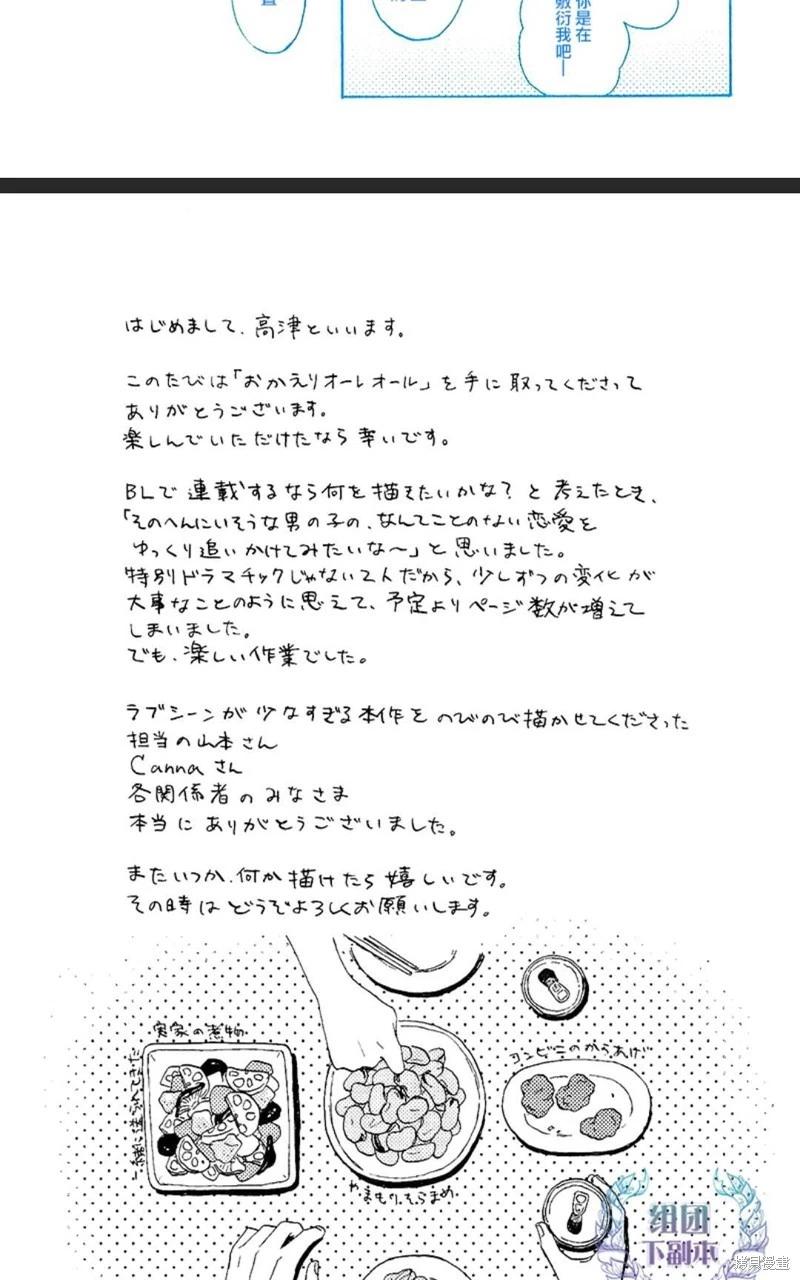 你是在
敷衍我吧—
はじめまして、高津といいます。
このたびは「おかえりオーレオール」を手に取ってくださって
ありがとうございます。
楽しんでいただけたなら幸いです。
BLで連載するなら何を描きたいかな?と考えたとき、
「そのへんにいそうな男の子の、なんてことのない恋愛を
ゆっくり追いかけてみたいな〜」と思いました。
特別ドラマチックじゃない2人だから、少しずつの変化が
大事なことのように思えて、予定よりページ数が増えて
しまいました。
でも、楽しい作業でした。
ラブシーンが少なすぎる本作をのびのび描かせてくださった
担当の山本さん
Cannaさん
各関係者のみなさま
本当にありがとうございました。
またいつか、何か描けたら嬉しいです。
その時はどうぞよろしくお願いします。
実家の煮物
コンビニのからあげ
やまもりそらまめ
组团
下副本
拷貝漫畫